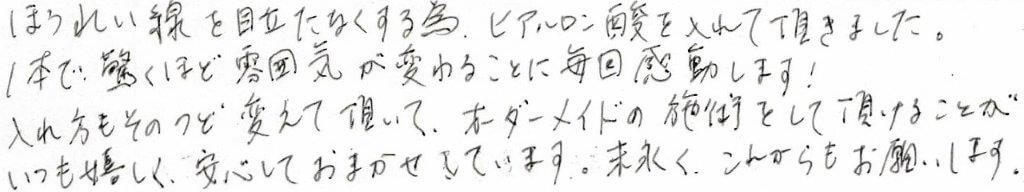 ほうれい線を目立たなくする為、ヒアルロン酸を入れて頂きました。
1本で驚くほど雰囲気が変わることに毎回感動します!
入れ方もそのつど変えて頂いて、オーダーメイドの施術をして頂けることが
いつも嬉しく、安心しておまかせしています。末永く、これからもお願いします。